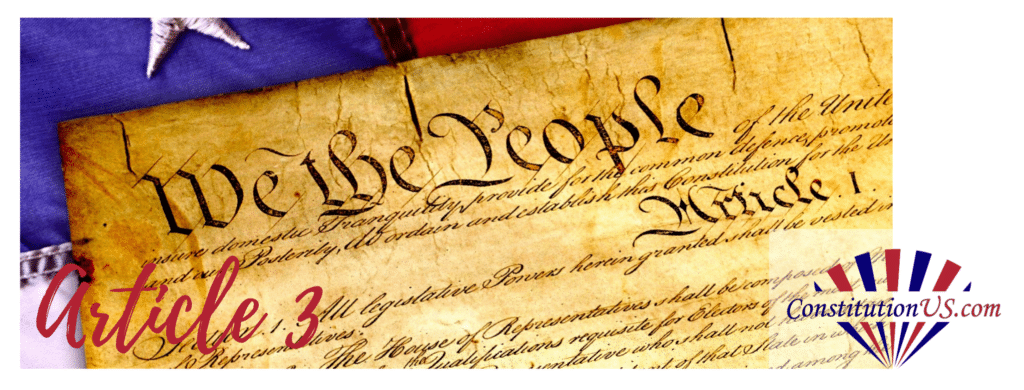 We the People
of the Unite
insure domestic Tranquility, provide for the common defence, promote
and our Posterity, do ordain and establish this Constitution for the Un
Article. I.
All legislative Powers herein granted shall be vested in
The House of Representatives shall be composed of
Qualifications requisite for Electors of the most
who shall not,
of that State in
Article 3
ConstitutionUS.com